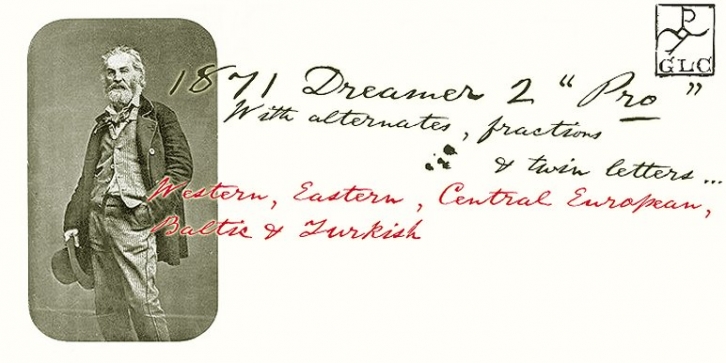 1871 Dreamer 2 “Pro”
With alternates, fractions
& twin letters...
Western, Eastern, Central European,
Baltic & Turkish
P
GLC